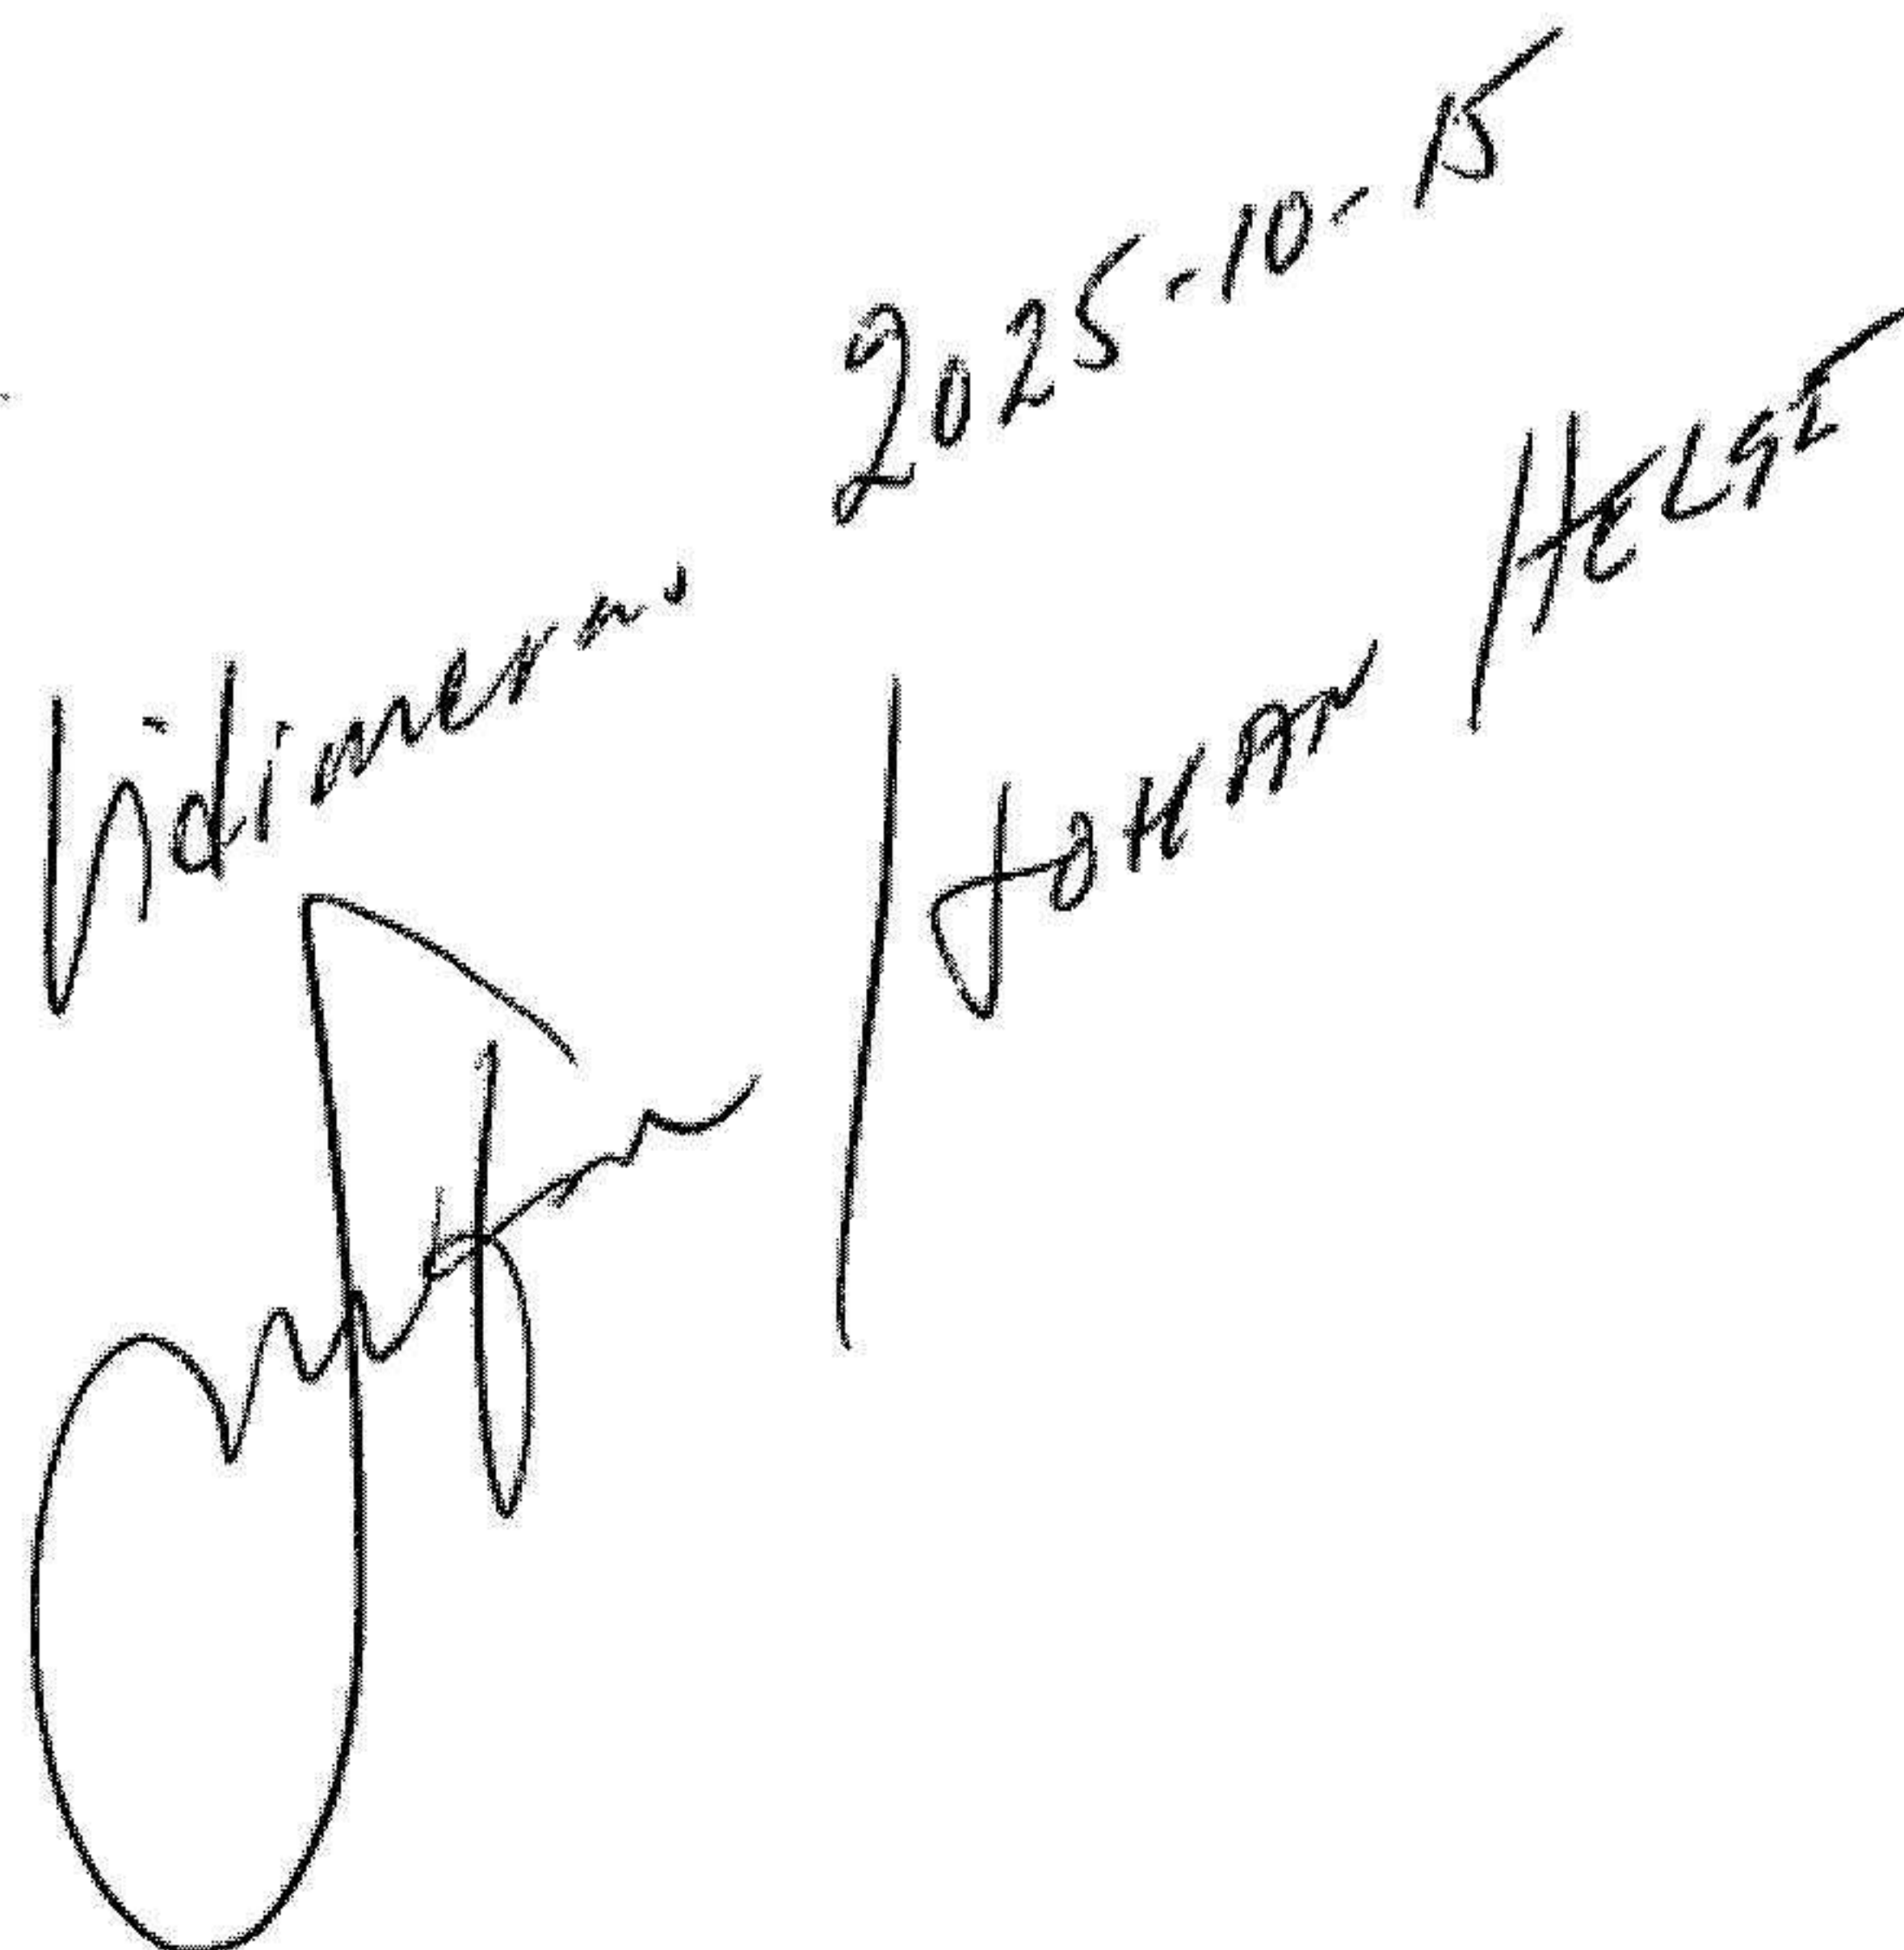 Vidimeras 2025-10-15
JOHAN HELGE